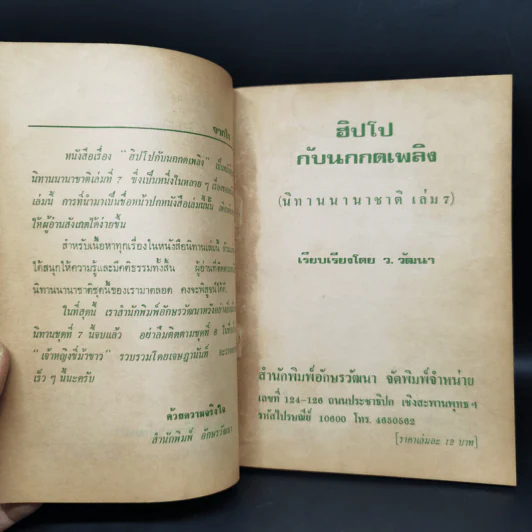 จากใจ
หนังสือเรื่อง "ฮิปโปกับนกกดเพลิง"
นิทานนานาชาติเล่มที่ 7 ซึ่งเป็นหนึ่งในหลาย ๆ
เล่มนี้ การที่นำมาเป็นชื่อหน้าปกหนังสือเล่มนี้นั้น
ให้ผู้อ่านสังเกตได้ง่ายขึ้น
สำหรับเนื้อหาทุกเรื่องในหนังสือนิทานเล่มนี้
ได้สนุกให้ความรู้และมีคติธรรมทั้งสิ้น ผู้อ่านที่
นิทานนานาชาติชุดนี้ของเรามาตลอด คงจะพิสูจน์ได้ดี
ในที่สุดนี้ เราสำนักพิมพ์อักษรวัฒนาหวังอย่างยิ่ง
นิทานชุดที่ 7 นี้จบแล้ว อย่าลืมติดตามชุดที่ 8
"เจ้าหญิงขี่ม้าขาว" รวบรวมโดยเจษฎานันท์
เร็ว ๆ นี้นะครับ
ด้วยความจริงใจ
สำนักพิมพ์ อักษรวัฒนา
ฮิปโป
กับนกกดเพลิง
(นิทานนานาชาติ เล่ม 7)
เรียบเรียงโดย ว. วัฒนา
สำนักพิมพ์อักษรวัฒนา จัดพิมพ์จำหน่าย
เลขที่ 124-126 ถนนประชาธิปก เชิงสะพานพุทธ ฯ
รหัสไปรษณีย์ 10600 โทร. 4650562
[ราคาเล่มละ 12 บาท]